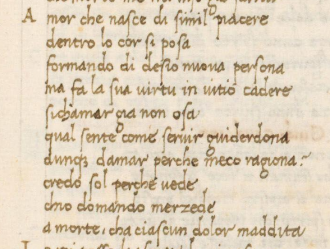 Amor che nasce di simil piacere
dentro lo cor si posa
formando di desio nuova persona
ma fa la sua virtu in vitio cadere
si chamar gia non osa
qual sente come servir guiderdona
dunq; damar perche meco ragiona?
credo sol perche vede
chio domando merzede
a morte, cha ciascun dolor maddita